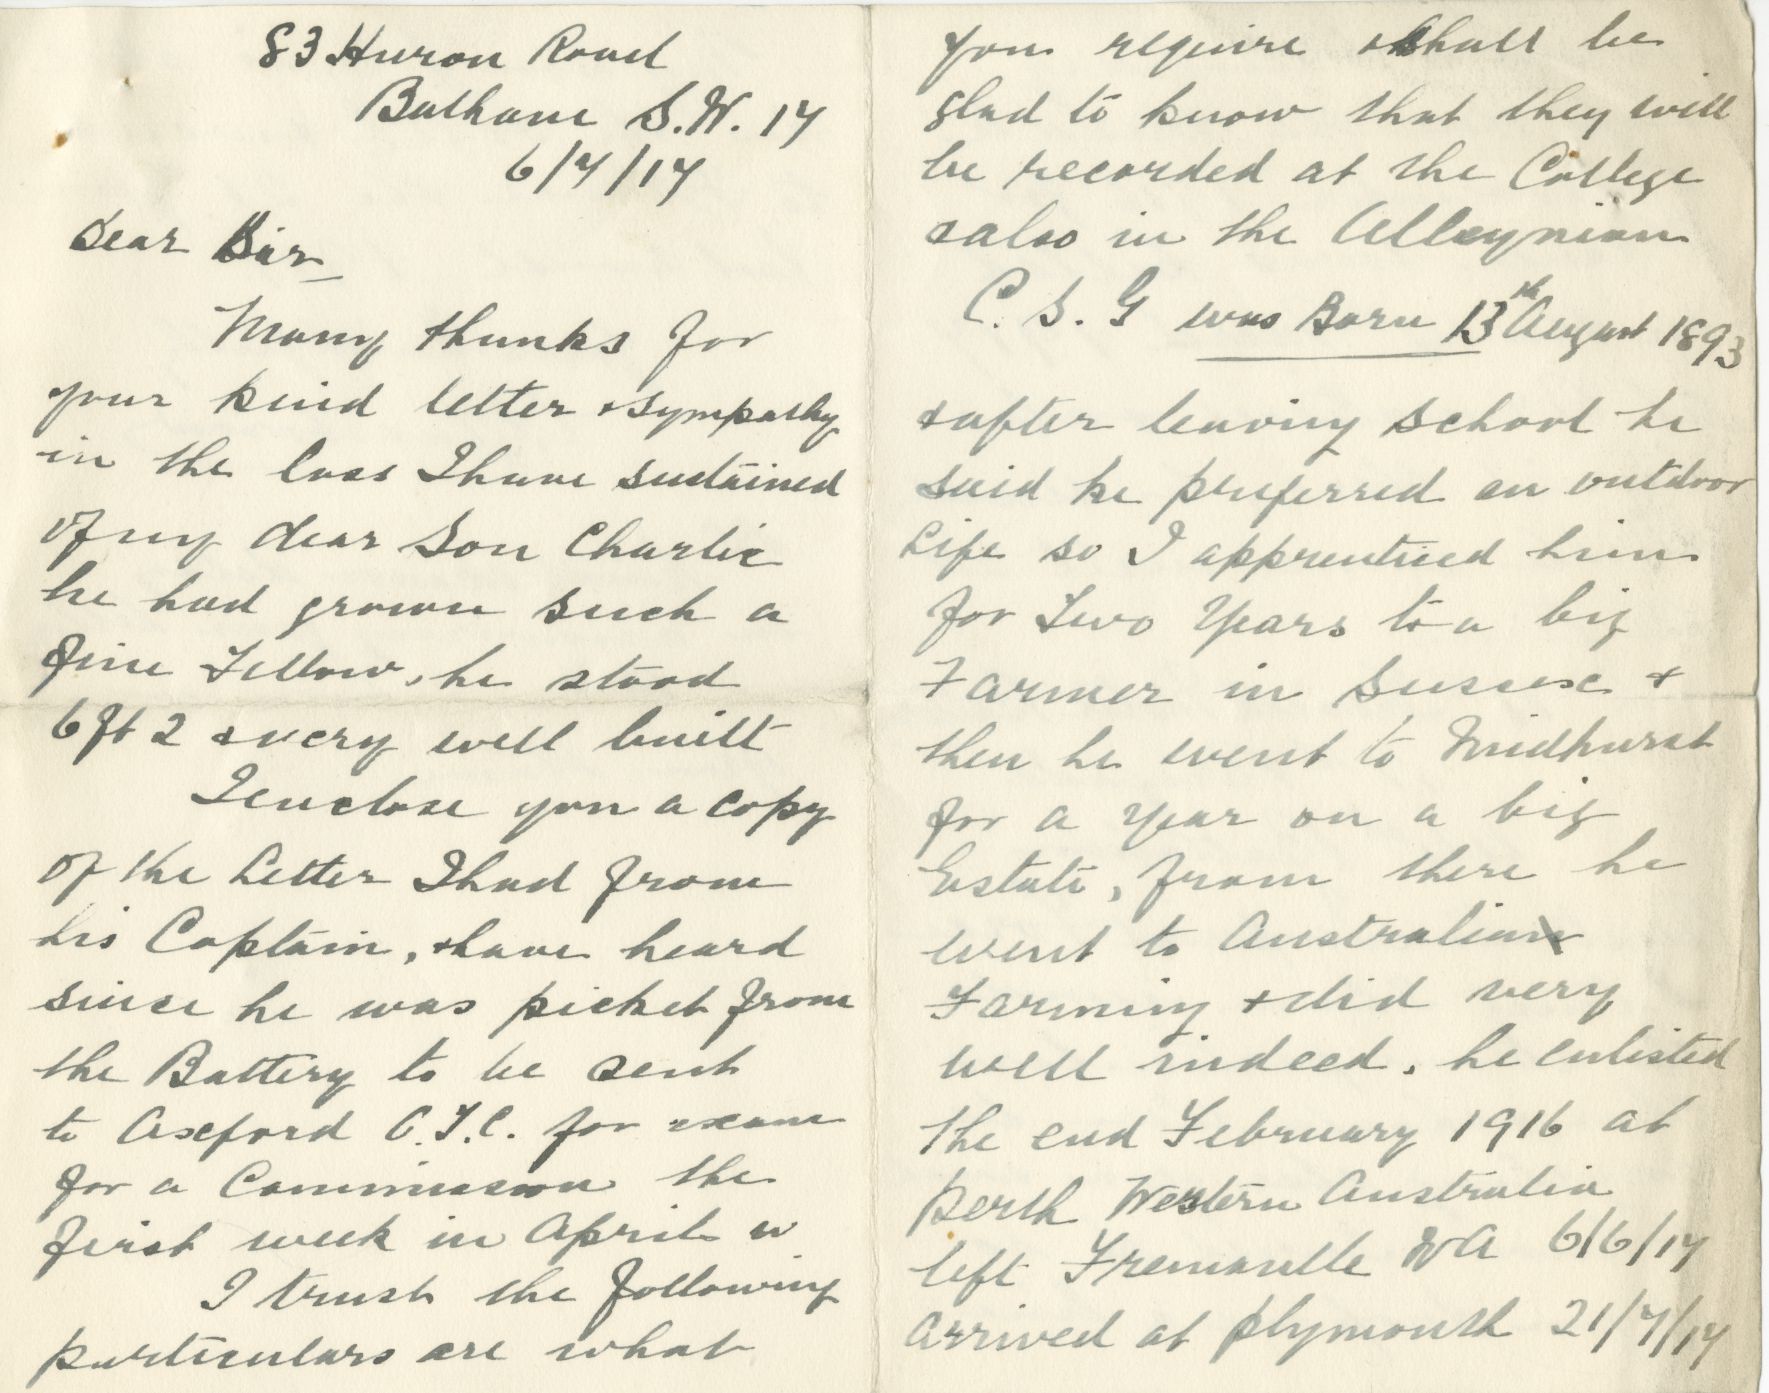 83 Huron Road
Balham S.W. 17
6/7/17
Dear Sir
Many thanks for
your kind letter & sympathy
in the loss I have sustained
of my dear Son Charlie
he had grown such a
fine Fellow, he stood
6 ft 2 & very well built
I enclose you a copy
of the Letter I had from
his Captain, & have heard
since he was picket from
the Battery to be sent
to Oxford O.T.C. for exam
for a Commission the
first week in April
I trust the following
particulars are what
you require & shall be
glad to know that they will
be recorded at the College
& also in the Alleynian
C. S. G was Born 13th August 1893
& after leaving School he
said he preferred an outdoor
Life so I apprenticed him
for Two Years to a big
Farmer in Sussex &
then he went to Midhurst
for a Year on a big
Estate, from there he
went to Australia
Farming & did very
well indeed. he enlisted
the end February 1916 at
Perth Western Australia
left Fremantle WA 6/6/17
arrived at Plymouth 21/7/17